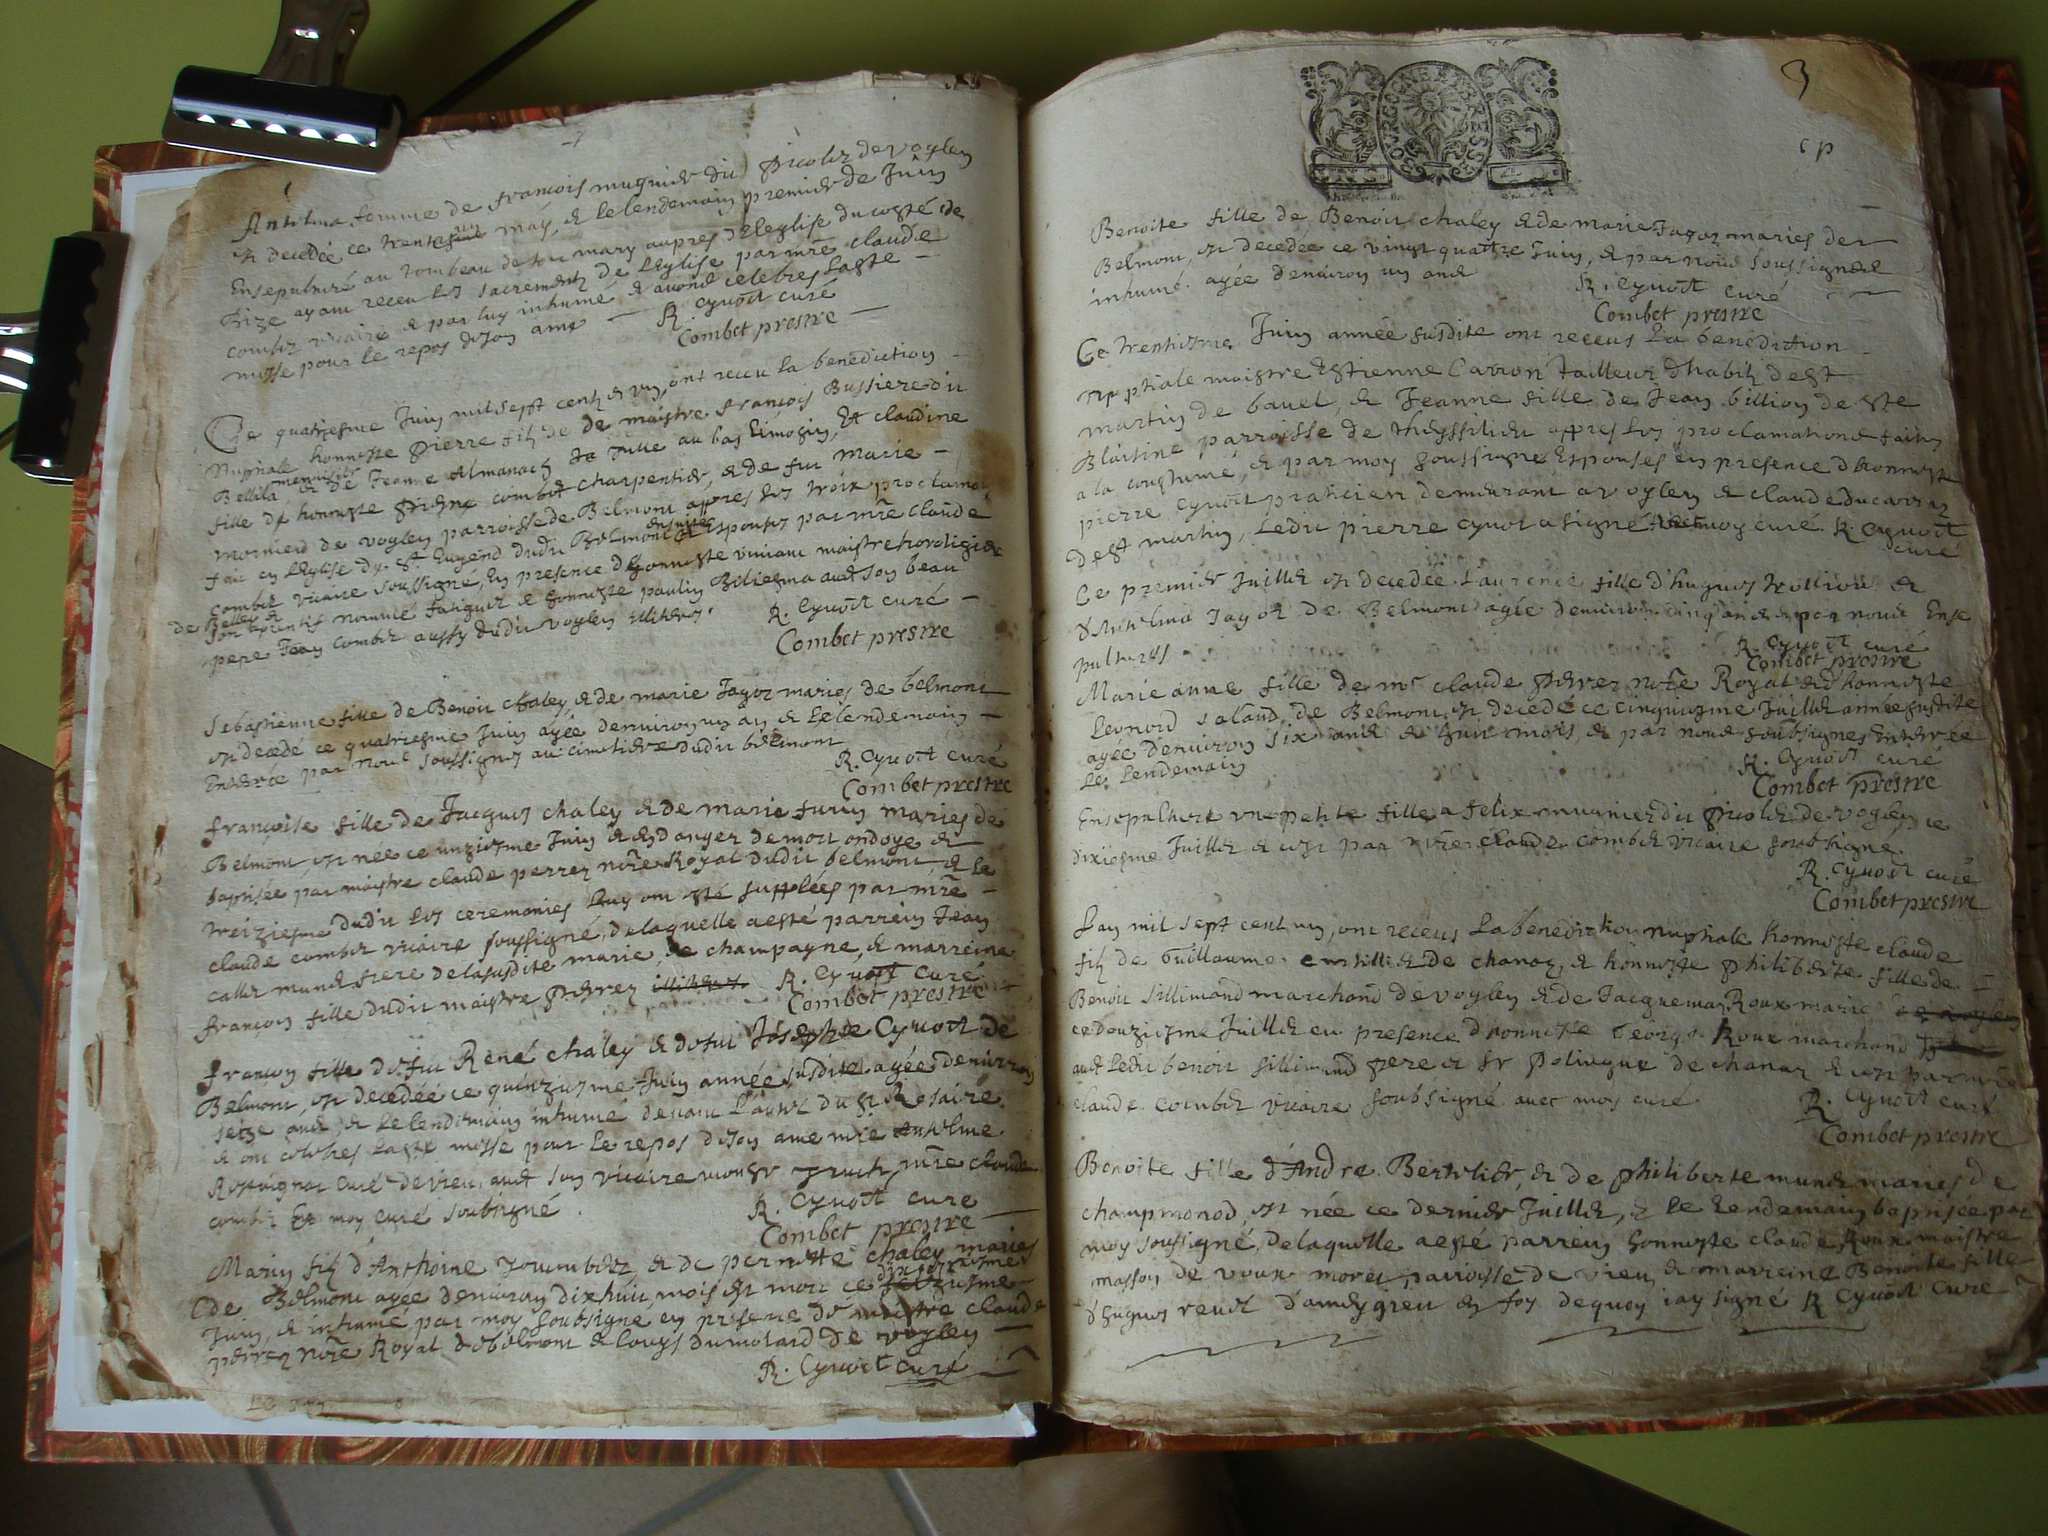 Anthelma femme de françois mugnier dit picolet de vogley
est decedée ce trente may, & le lendemain premier de Juin
Ensepulturé au tombeau de son mary aupres de l'eglise du costé de
bize ayant receu les sacrements de l'Eglise par mre claude
combet vicaire & par luy inhumé & avons celebres laste
messe pour le repos de son ame
R. Cyvoct curé
Combet prestre
Ce quatriesme Juin mil sept cent & un, ont receu la benediction
Nuptiale honneste Pierre filz de maistre françois Bussiere du
menuisier
& de Jeanne Almanach de Tulle au bas Limozin, Et claudine
fille de honneste combet charpentier, & de fue marie
mornieu de vogley parroisse de Belmont appres les troix proclamaõ
fait en l'Eglise de St. Eugend dudit Belmont & Espousez par mre claude
combet vicaire soussigné, En presence d'honneste vivian maistre horologier
de Belley &
son aprentif nommé & honneste paulin avec son beau
pere Jean combet aussy dudit vogley illitteres.
R. Cyvoct curé
Combet prestre
Sebastienne fille de Benoit chaley & de marie Jagoz maries de belmont
est decedé ce quatriesme Juin agée denviron un an & le lendemain
Enterée par nous soussignez au cimetiere dudit belmont
R. Cyvoct curé
Combet prestre
françoise fille de Jacques chaley & de marie furin maries de
Belmont, est née ce unziesme Juin & en danger de mort ondoyé &
baptisée par maistre claude perrez nore Royal dudit belmont, & le
treiziesme dudit les ceremonies luy ont esté supplées par mre
claude combet vicaire soussigné, de laquelle a esté parrein Jean
callet munet frere de la susdite marie de champagne, & marreine
françoise fille dudit maistre perrez R. Cyvoct curé
Combet prestre
françoise fille de fu René chaley & de fue Josephte Cyvoct de
Belmont, est decedée ce quinziesme Juin année susdite agée denviron
seize ans, & le lendemain inhumé devant l'autel du st Rosaire
& ont celebres laste messe pour le repos de son ame mre Anthelme
Rossaignol curé de vieu, avec son vicaire monsr mre claude
combet Et moy curé soubsigné.
R. Cyvoct curé
Combet prestre
Marin filz d'Anthoine & de pernette chaley maries
de Belmont agée denviron dix huit mois est mort ce
Juin, & inhumé par moy soubsigné en presence de maistre claude
perrez nore Royal de belmont & louys dumolard de vogley
R. Cyvoct curé
3
BOURGOGNE BRESSE
cp
Benoite fille de Benoit chaley & de marie Jagoz maries de
Belmont, est decedée ce vingt quattre Juin, & par nous soussignez
inhumé. agée denviron un ans
R. Cyvoct curé
Combet prestre
Ce trentiesme Juin année susdite ont receus la benediction
nuptiale maistre Estienne Carron tailleur d'habitz de st
martin de bavel, & Jeanne fille de Jean billion de ste
Blaisine parroisse de theyssilieu appres les proclamations faites
a la coustume, & par moy soussigné Espouses en presence d'honneste
pierre Cyvoct praticien demeurant a vogley & claude ducarroz
de st martin, ledit pierre cyvoct a signé avec moy curé R. Cyvoct
curé
Ce premier Juillet est decedée Laurence fille d'hugues trollion &
d'Anthelma Jagoz de Belmont agée denviron cinq ans & par nous Ense
pulturés
R. Cyvoct curé
Combet prestre
Marie anne fille de mr claude perrez nore Royal & d'honneste
Leonord saland de Belmont est decedé ce cinquiesme Juillet année susdite
agée denviron six ans & huit mois & par nous soubsignes Enterée
le lendemain
R. Cyvoct curé
Combet prestre
Ensepulturé une petite fille a felix mugnier dit picolet de vogley, ce
dixiesme Juillet & c'est par mre claude combet vicaire soubsigné
R. Cyvoct curé
Combet prestre
L'an mil sept cent un, ont receus la benediction nuptiale honneste claude
filz de Guillaume de chanaz, & honneste philiberte fille de
Benoit sillimand marchand de vogley & de Jacquema Roux maries
ce douziesme Juillet en presence d'honneste George Roux marchand
avec ledit benoit sillimand pere & sr polinque de chanaz & c'est par mre
claude combet vicaire soubsigné avec moy curé
R. Cyvoct curé
Combet prestre
Benoite fille d'André Berthelier, & de philiberte munet maries de
champmonod, est née ce dernier Juillet, & le lendemain baptisée par
moy soussigné, de laquelle a esté parrein honneste claude Roux maistre
masson de vaux moret, parroisse de vieu, & marreine Benoite fille
d'hugues revel d'ameygieu en foy dequoy iay signé R Cyvoct curé